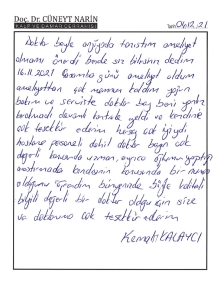 Doç. Dr. CÜNEYT NARİN
KALP VE DAMAR CERRAHİSİ
Tarih: 06.12.21
Doktor beyle aracılığıyla tanıştım ameliyat
olmamı önerdi bende siz bilirsiniz dedim
16.11.2021 Çarşamba günü ameliyat oldum
ameliyattan çok memnun kaldım yoğun
bakım ve serviste doktor bey beni yalnız
bırakmadı devamlı kontrole geldi ve kendisine
çok teşekkür ederim herşey çok iyiydi
hastane personeli dahil doktor beyin çok
değerli konusunda uzman, ayrıca oğlumun yaptığı
araştırmada kendisinin konusunda bir numara
olduğunu öğrendim bünyenizde böyle kaliteli
bilgili değerli bir doktor olduğu için size
ve doktoruma çok teşekkür ederim
Kemal KALAYCI